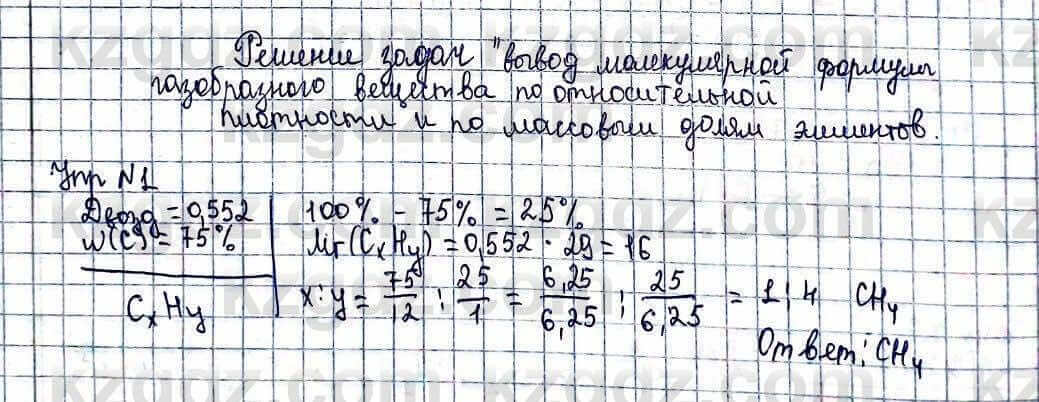 Решение задач "вывод молекулярной формулы
газообразного вещества по относительной
плотности и по массовым долям элементов.
Упр №1
Dвозд = 0,552
w(C) = 75%
CxHy
100% - 75% = 25%
Mr(CxHy) = 0,552 · 29 = 16
x:y = 75/12 : 25/1 = 6,25/6,25 : 25/6,25 = 1:4 CH4
Ответ: CH4